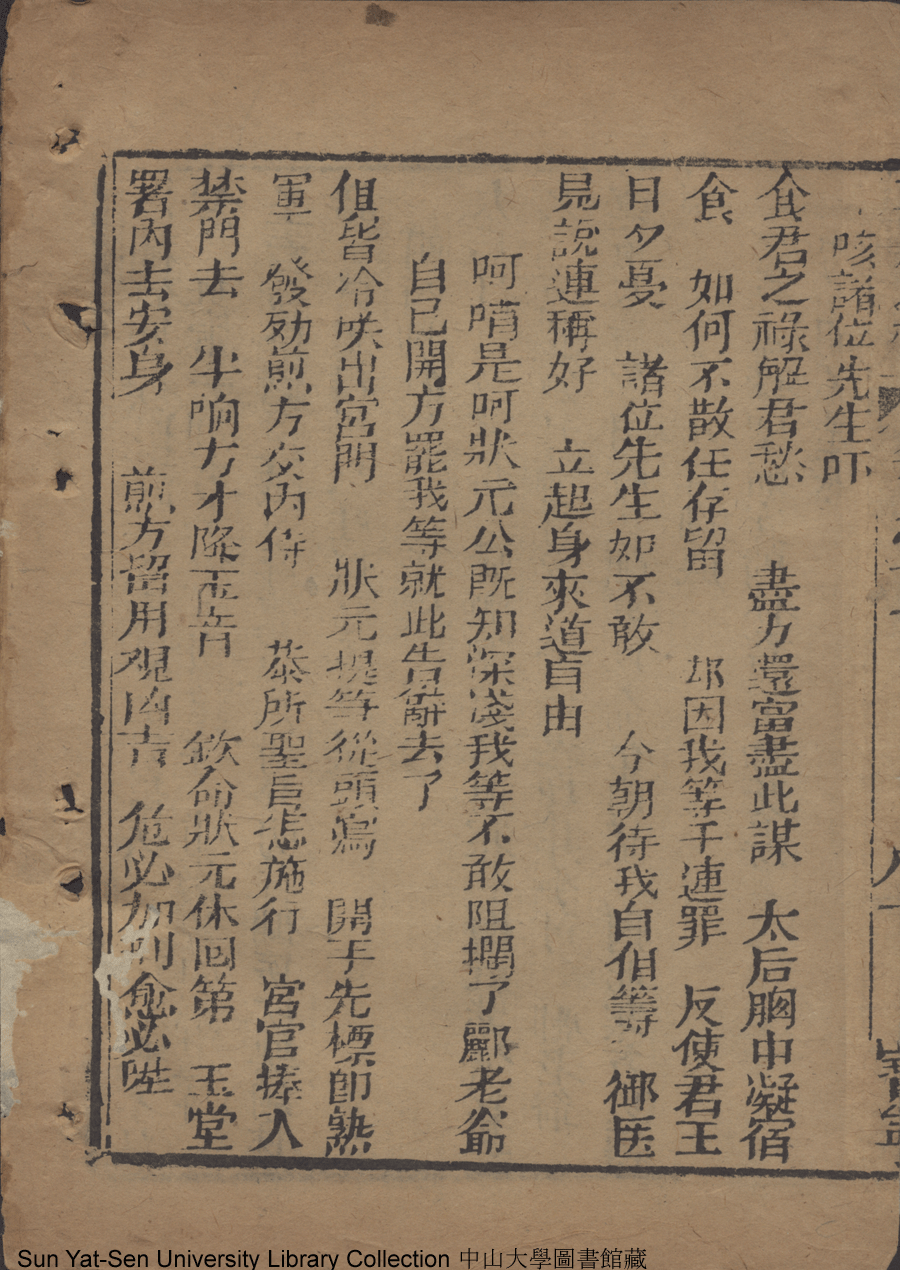 咳諸位先生吓
食君之祿解君愁　盡力還當盡此謀　太后胸中凝宿
食　如何不散任存留　却因我等干連罪　反使君王
日夕憂　諸位先生如不敢　今朝待我自担籌　御医
見説連稱好　立起身來道自由
呵唷是呵狀元公既知深淺我等不敢阻攔了酈老爺
自己開方罷我等就此告辭去了
俱皆冷咲出宮門　狀元提筆從頭寫　開手先標即熟
軍　發効煎方交內侍　恭所聖旨怎施行　宮官捧入
禁門去　半响方才降玉音　欽命狀元休回第　玉堂
署內去安身　煎方留用观凶吉　危必加刑愈必陞
Sun Yat-Sen University Library Collection 中山大學圖書館藏